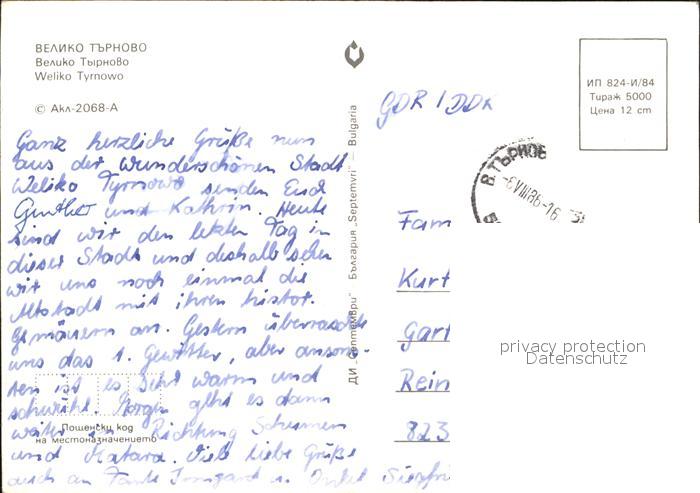 ВЕЛИКО ТЪРНОВО
Велико Тырново
Weliko Tyrnowo
© Акл-2068-А
Ganz herzliche Grüße nun
aus der wunderschönen Stadt
Weliko Tyrnowo senden Euch
Günther und Kathrin. Heute
sind wir den letzten Tag in
dieser Stadt und deshalb sehen
wir uns noch einmal die
Altstadt mit ihren histor.
Gemäuern an. Gestern überraschte
uns das 1. Gewitter, aber anson-
sten ist es sehr warm und
schwühl. Morgen geht es dann
weiter in Richtung Schumen
und Madara. Viele liebe Grüße
auch an Tante Irmgard u. Onkel Siegfri
Пощенски код
на местоназначението
ДИ „Септември" България „Septemvri" — Bulgaria
GDR / DDR
ИП 824-И/84
Тираж 5000
Цена 12 cm
В. ТЪРНОВ
VIII86-16
Fam
Kurt
Gart
Rein
823
privacy protection
Datenschutz